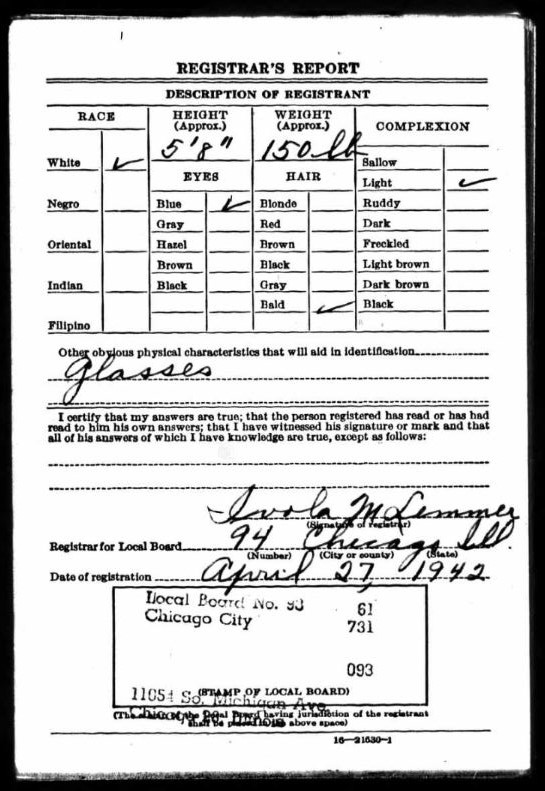 REGISTRAR'S REPORT
DESCRIPTION OF REGISTRANT
RACE
HEIGHT (Approx.)
WEIGHT (Approx.)
COMPLEXION
5'8"
150 lb
White ✓
Sallow
EYES
HAIR
Light ✓
Negro
Blue ✓
Blonde
Ruddy
Gray
Red
Dark
Oriental
Hazel
Brown
Freckled
Brown
Black
Light brown
Indian
Black
Gray
Dark brown
Bald ✓
Black
Filipino
Other obvious physical characteristics that will aid in identification
Glasses
I certify that my answers are true; that the person registered has read or has had
read to him his own answers; that I have witnessed his signature or mark and that
all of his answers of which I have knowledge are true, except as follows:
Ivola M Lemmer
(Signature of registrar)
Registrar for Local Board 94 Chicago Ill.
(Number) (City or county) (State)
Date of registration April 27, 1942
Local Board No. 93 61
Chicago City 731
093
(STAMP OF LOCAL BOARD)
So. Michigan Ave
(The stamp of the Local Board having jurisdiction of the registrant
shall be placed in the above space)
16—21630-1